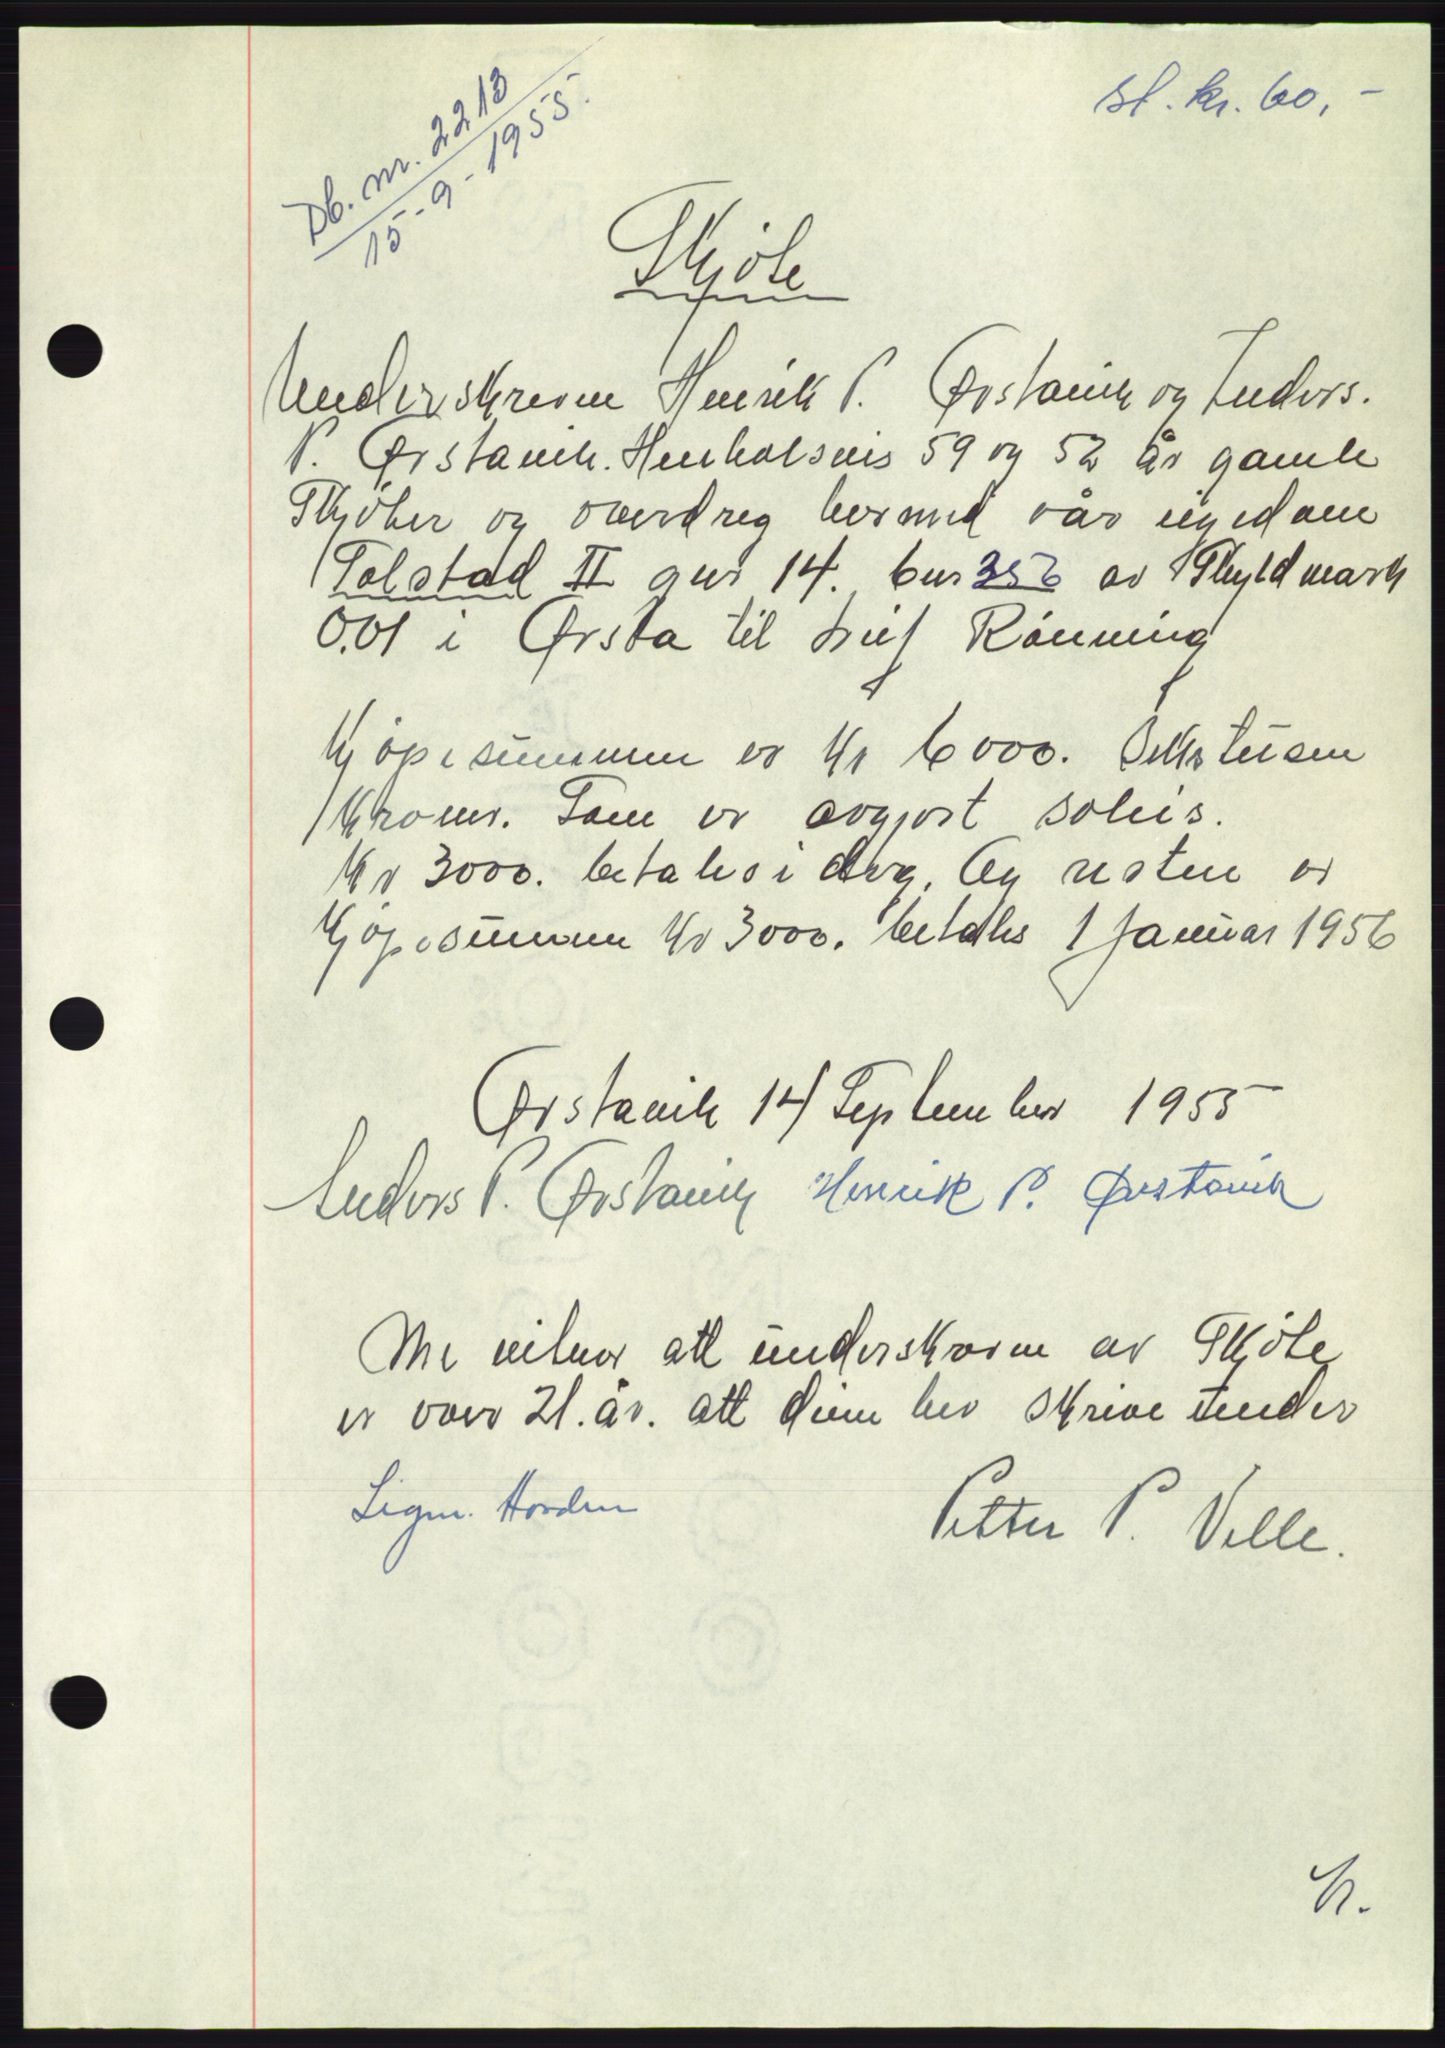 Db. nr. 2213
15-9-1955.
st. kr. 60,-
Skjöte
Underskreven Henrik P. Ørstavik og Anders.
P. Ørstavik. Henholsvis 59 og 52 år gamle
Skjöter og overdreg hermed vår eigedom
Solstad II gnr 14. bnr 356 av Skyldmark
0.01 i Ørsta til Leif Rönning
Kjöpesummen er Kr 6000. Sekstusen
Kroner. Som er avgjort soleis.
Kr 3000. betales i dag. Og resten av
Kjöpesummen Kr 3000. betales 1 Januar 1956
Ørstavik 14/ September 1955
Anders P. Ørstavik Henrik P. Ørstavik
Me vitner att underskrivne av Skjöte
er over 21. år. att dien her skrive under
Sigm. Hovden
Petter P. Velle.